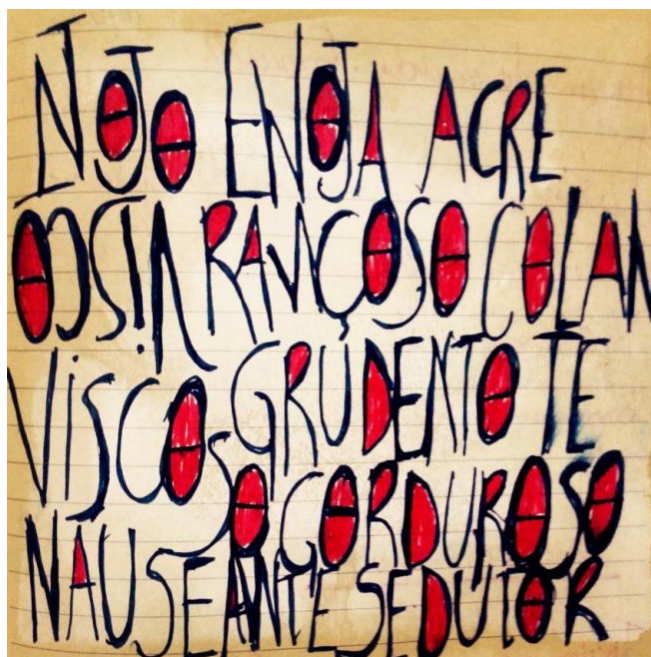 NOJO ENOJA ACRE
VISCO RANÇOSO COLAN
VISCOSO GRUDENTO TE
GORDUROSO
NAUSEANTE SEDUTOR